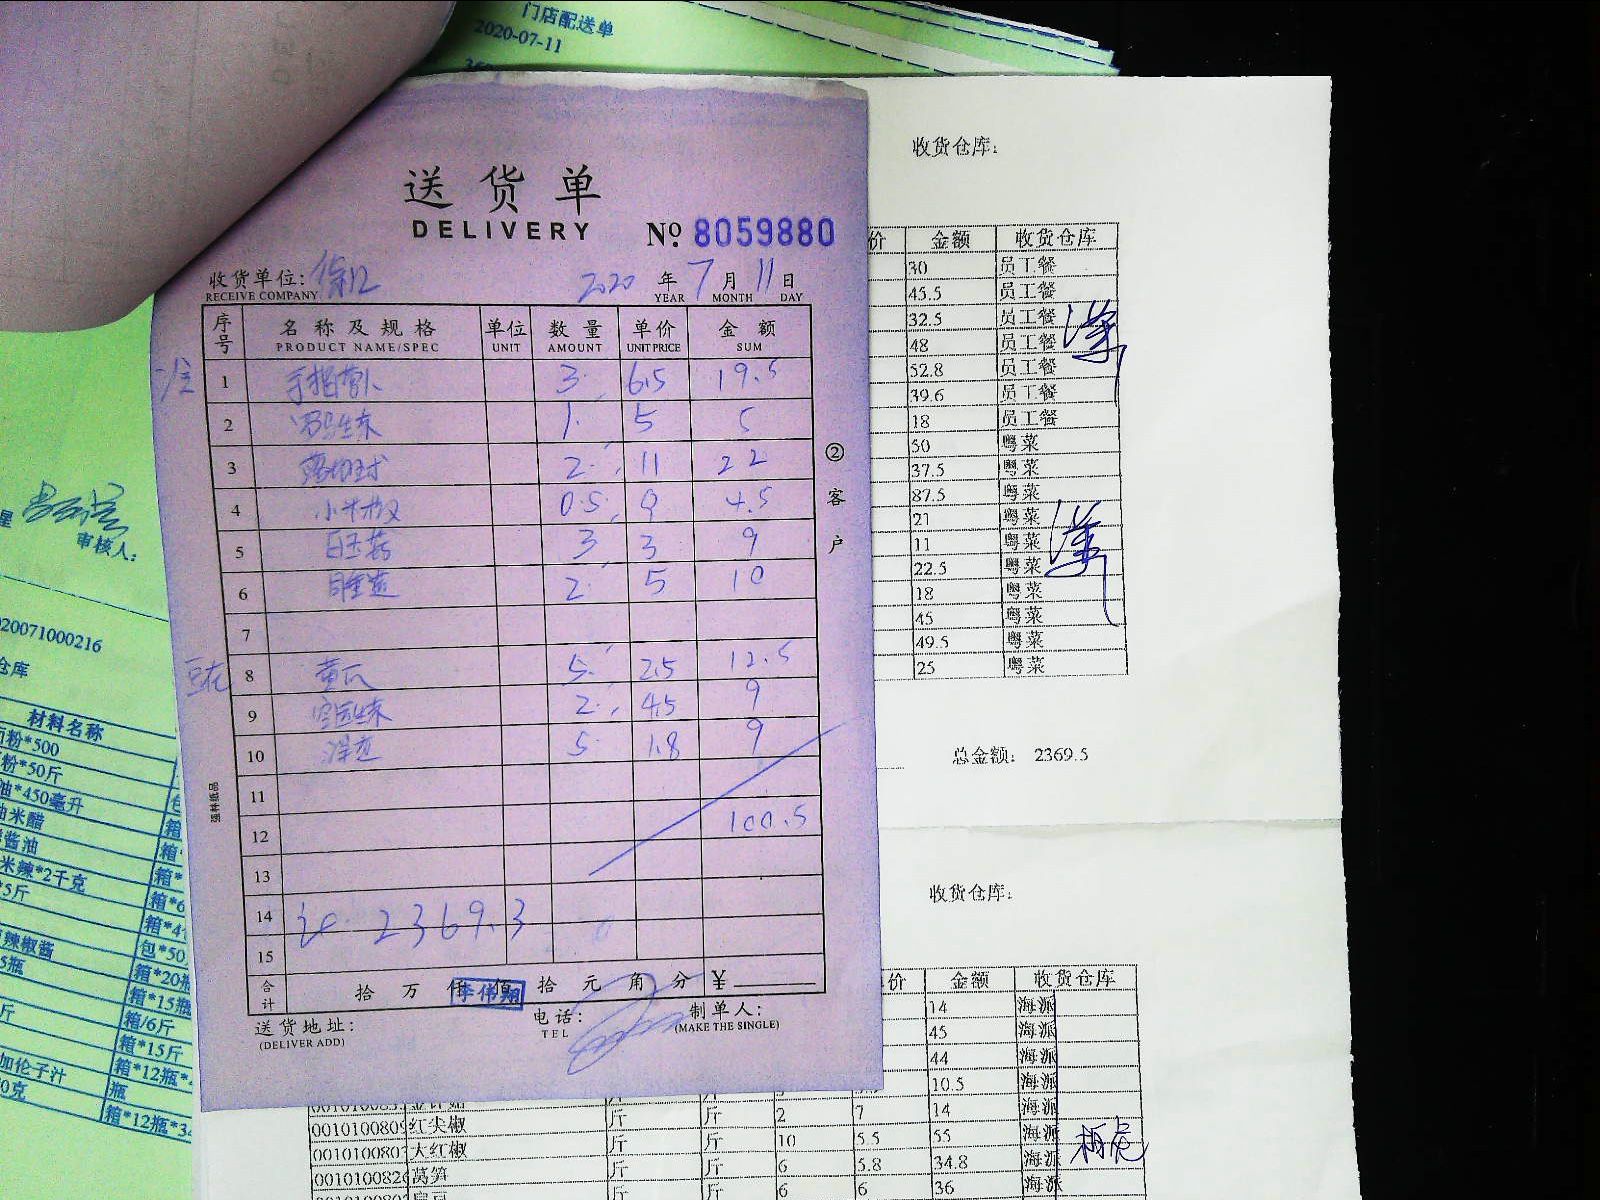 门店配送单
2020-07-11
送货单
DELIVERY
№ 8059880
收货单位: 徐记 2020 年 7 月 11 日
RECEIVE COMPANY YEAR MONTH DAY
序号 名称及规格 单位 数量 单价 金额
PRODUCT NAME/SPEC UNIT AMOUNT UNIT PRICE SUM
1 手指萝卜 3 6.5 19.5
2 生菜 1 5 5
3 2 11 22
4 小米椒 0.5 9 4.5
5 白玉菇 3 3 9
6 2 5 10
7
豆花 8 黄瓜 5 2.5 12.5
9 生菜 2 4.5 9
10 洋葱 5 1.8 9
11
12 100.5
13
14 计 2369.3
15
合计 拾 万 仟 佰 拾 元 角 分 ¥
李伟翔
送货地址: 电话: 制单人:
(DELIVER ADD) TEL (MAKE THE SINGLE)
②客户
收货仓库:
价 金额 收货仓库
30 员工餐
45.5 员工餐
32.5 员工餐
48 员工餐
52.8 员工餐
39.6 员工餐
18 员工餐
50 粤菜
37.5 粤菜
87.5 粤菜
21 粤菜
11 粤菜
22.5 粤菜
18 粤菜
45 粤菜
49.5 粤菜
25 粤菜
总金额: 2369.5
收货仓库:
价 金额 收货仓库
14 海派
45 海派
44 海派
10.5 海派
斤 斤 2 7 14 海派
红尖椒 斤 斤 10 5.5 55 海派
大红椒 斤 斤 6 5.8 34.8 海派
莴笋 斤 斤 6 6 36 海派
审核人:
20071000216
仓库
材料名称
粉*500
粉*50斤
油*450毫升
米醋
酱油
米辣*2千克
*5斤
辣椒酱
5瓶
斤
加伦子汁
0克
包
箱
箱*
箱*
箱*6
箱*4
包*50
箱*20瓶
箱*15瓶
箱/6斤
箱*15斤
箱*12瓶*
瓶
箱*12瓶*34